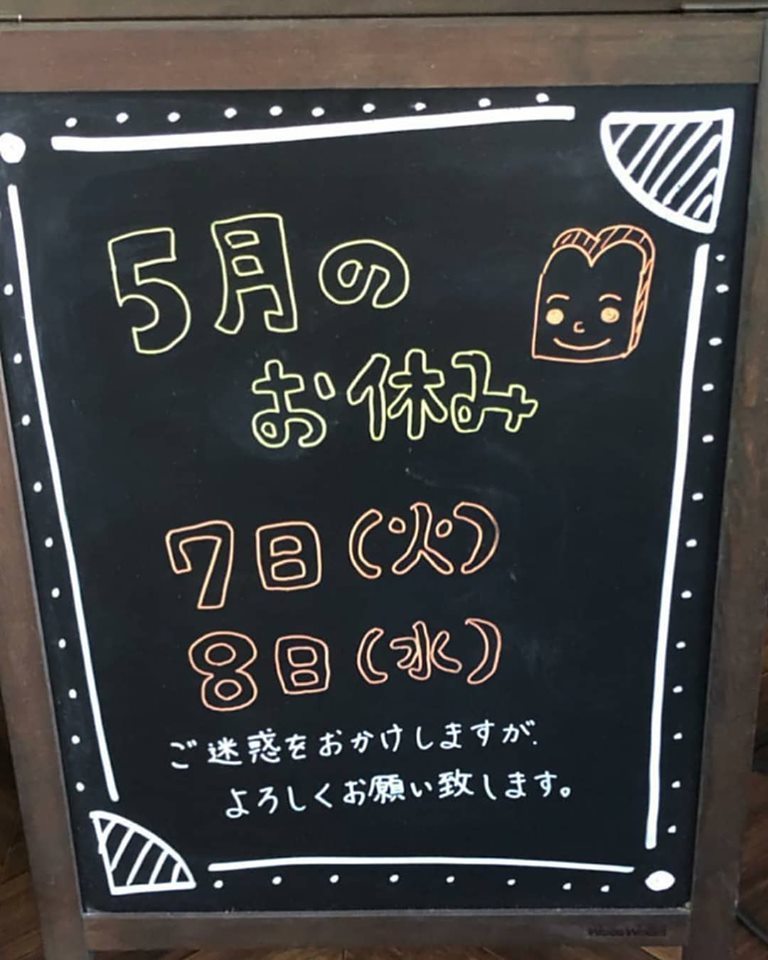 5月の
お休み
7日(火)
8日(水)
ご迷惑をおかけしますが、
よろしくお願い致します。